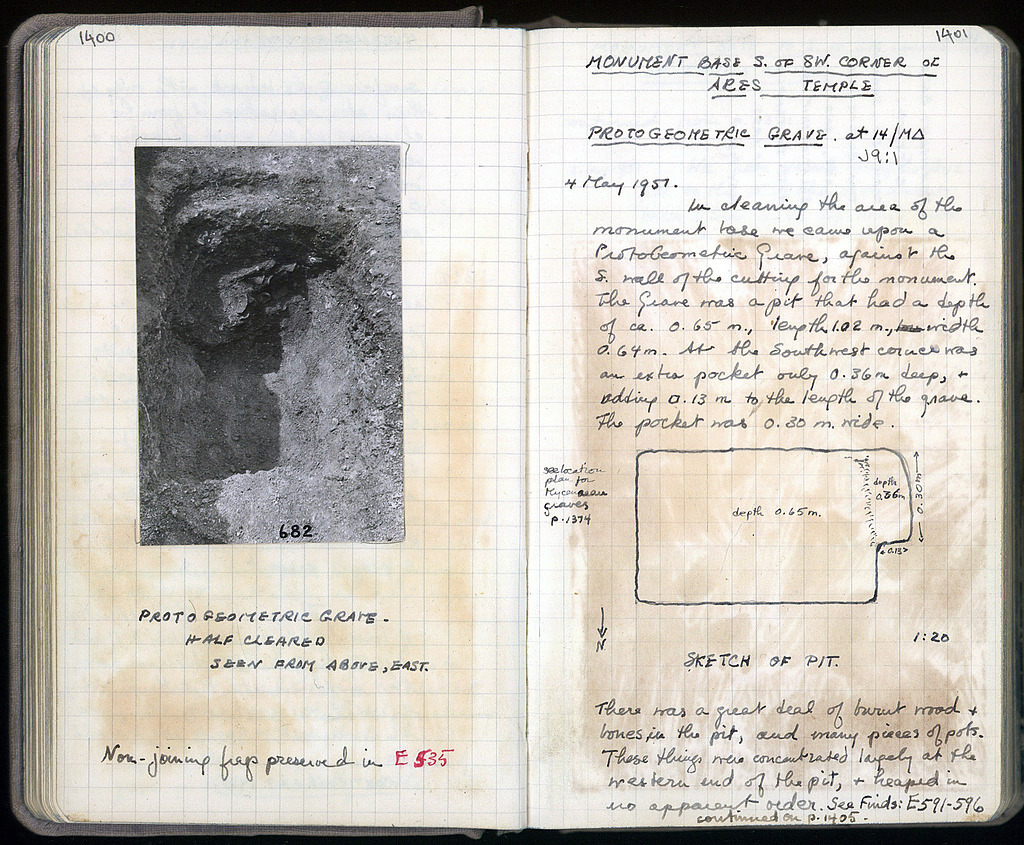 1400
682
PROTOGEOMETRIC GRAVE.
HALF CLEARED
SEEN FROM ABOVE, EAST.
Non-joining frags preserved in E 535
1401
MONUMENT BASE S. OF SW. CORNER OF
ARES TEMPLE
PROTOGEOMETRIC GRAVE. at 14/ΜΔ
J9:1
4 May 1951.
In cleaning the area of the
monument base we came upon a
ProtoGeometric Grave, against the
S. wall of the cutting for the monument.
The Grave was a pit that had a depth
of ca. 0.65 m., length 1.02 m., width
0.64m. At the Southwest corner was
an extra pocket only 0.36m deep, +
adding 0.13 m to the length of the grave.
The pocket was 0.30 m. wide.
see location
plan for
Mycenaean
graves
p. 1374
depth 0.65m.
depth
0.30m
0.13
N
1:20
SKETCH OF PIT.
There was a great deal of burnt wood +
bones in the pit, and many pieces of pots.
These things were concentrated largely at the
western end of the pit, + heaped in
no apparent order. See Finds: E591-596
continued on p. 1405.